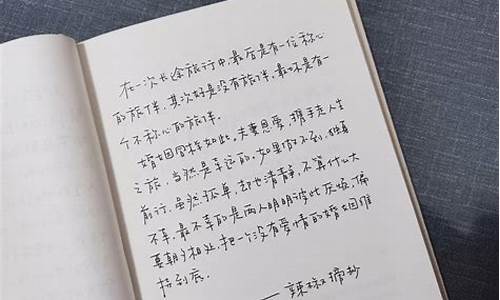 在一次长途旅行中,最好是有一位称心
的旅伴,其次好是没有旅伴,最坏是有一
个不称心的旅伴。
婚姻同样如此。夫妻恩爱,携手走人生
之旅,当然是幸运的。如果做不到,独自
前行,虽然孤单,却也清静,不算什么大
不幸。最不幸的是两人明明彼此厌烦,偏
要朝夕相处,把一个没有爱情的婚姻维
持到底。
—— 辣椒 摘抄